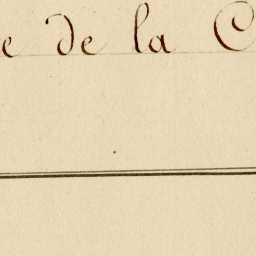 e de la C